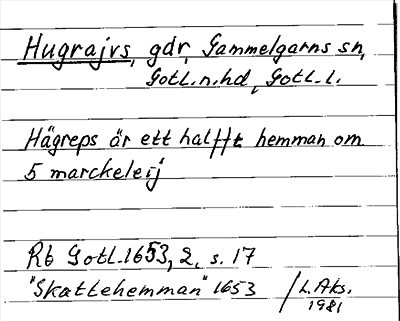 Hugrajvs, gdr, Gammelgarns sn,
Gotl.n.hd, Gotl.l.
Hägreps är ett halfft hemman om
5 marckeleij
Rb Gotl.1653, 2, s. 17
"Skattehemman" 1653 / L. Aks.
1981